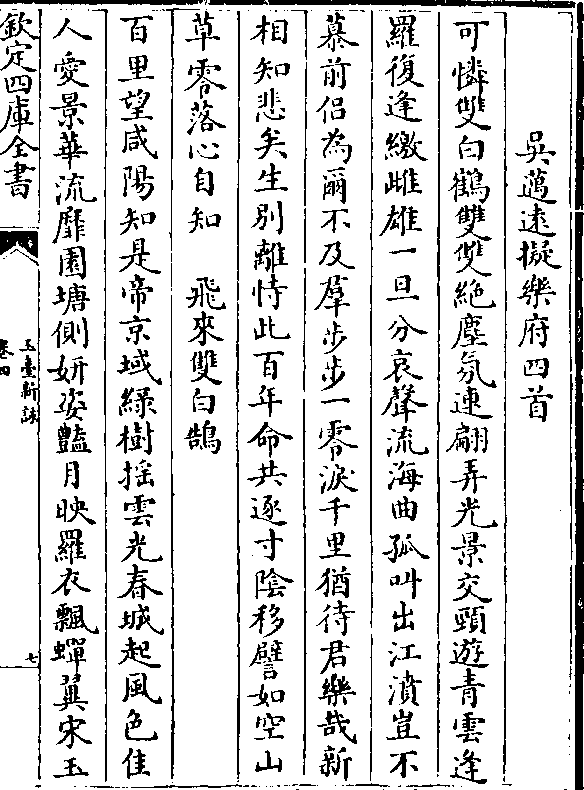 吳邁遠擬樂府四首
可憐雙白鵠雙雙絶塵氛連翩弄光景交頸遊青雲逢
羅復逢繳雌雄一旦分哀聲流海曲孤叫出江濆豈不
慕前侣為爾不及羣步步一零淚千里猶待君樂哉新
相知悲矣生别離恃此百年命共逐寸隂移譬如空山
草零落心自知　飛來雙白鵠
百里望咸陽知是帝京域緑樹揺雲光春城起風色佳
人愛景華流靡園塘側妍姿豔月映羅衣飄蟬翼宋玉
欽定四庫全書
玉臺新詠
卷四
七